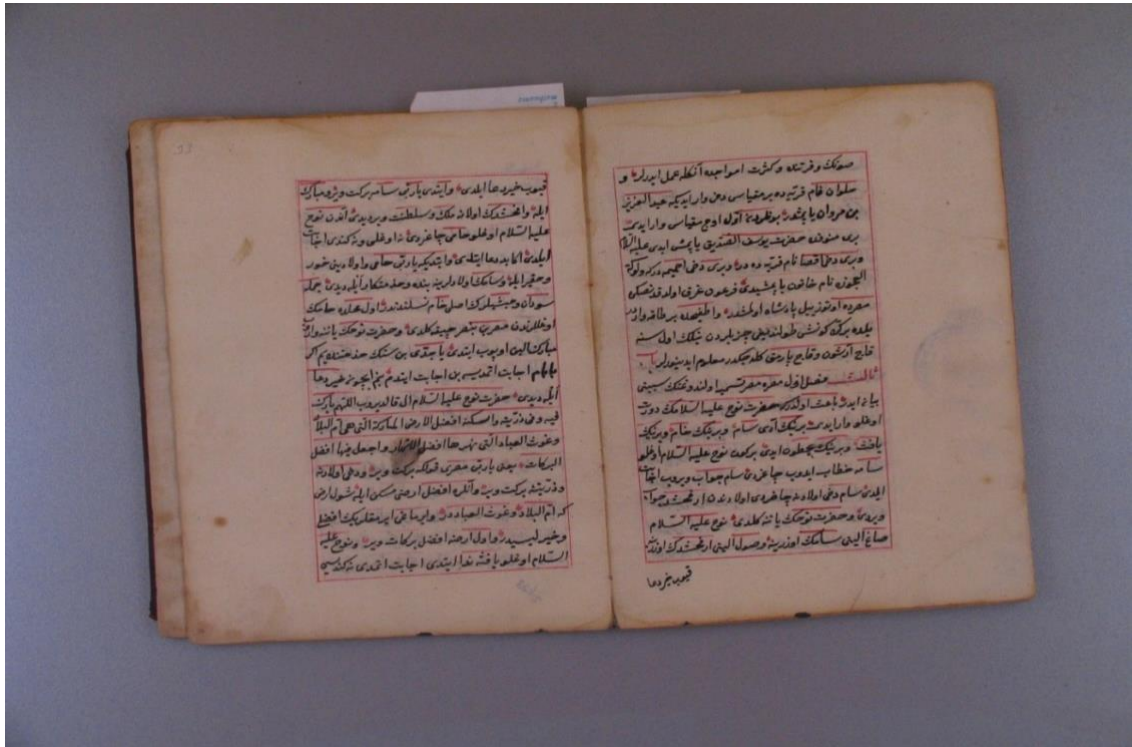 صونك و فرتنه و كثرت امواجده آنكله عمل ايدرلر و
حلوان نام قريه ده بر مقياسى دخى وار ايديكه عبد العزيز
بن مروان ياپمشدر بونلردن اول اوچ مقياس وار ايدى
برى منوفده حضرت يوسف الصديق ياپمش ايدى عليه السلام
وبرى دخى انصنا نام قريه ده در وبرى دخى اخميم ده در دلوكة
العجوز نام خاتون ياپمشيدى فرعون غرق اولدقدنصكره
مصره اوتوز ييل پادشاه اولمشدر
ييلده بركره كونشى طولنديغى چزيلردن نيلك اول سنه
قاچ آرشون و قاچ پارمق كله جكدر معلوم ايدينورلر باب
ثالث فصل اول مصره مصر تسميه اولندوغنك سببنى
بيان ايدر باعث اولدركه حضرت نوح عليه السلامك دورت
اوغلو وار ايدى برينك آدى سام وبرينك حام وبرينك
يافث وبرينك يحطون ايدى بركون نوح عليه السلام اوغلو
سامه خطاب ايدوب چاغردى سام جواب ويروب اجابت
ايلدى سام دخى اولادنه چاغردى اولادندن ارفخشد جواب
ويردى و حضرت نوحك ياننه كلدى نوح عليه السلام
صاغ الينى سامك اوزرينه وصول الينى ارفخشدك اوزرينه
قيوب خير دعا
قيوب خير دعا ايلدى وايتدى يا رب سامه بركت وير و مبارك
ايله وارفخشدك اولادنه ملك و سلطنت ويره ديدى آندن نوح
عليه السلام اوغلو حامى چاغردى نه اوغلى و نه كندى اجابت
ايلدى اكا بد دعا ايتدى وايتديكه يا رب حامى و اولادين خور
و حقير ايله وسامك اولادلرينه بنده و خدمتكار ايله ديدى جمله
سودان و حبشيلرك اصلى حام نسلندندر اول محلده حامك
اوغللرندن مصر بن بنصر چيقه كلدى و حضرت نوحك ياننه واروب
مبارك الين اوپوب ايتدى يا جدى بن سنك خدمتكده يم اكر
بابام اجابت اتمديسه بن اجابت ايتدم بنم ايچون خير دعا
ايله ديدى حضرت نوح عليه السلام ال قالديروب اللهم بارك
فيه وفى ذريته واسكنه افضل الارض المباركة التى هى ام البلاد
وغوث العباد التى نهرها افضل الانهار واجعل فيها افضل
البركات يعنى يا رب مصرى قولكه بركت وير و دخى اولادنه
و ذريتنه بركت وير و آنلره افضل ارضى مسكن ايله شول ارض
كه ام البلاد و غوث العباددر و ايرماغى ايرمقلرك افضلى
و خيرليسيدر و اول ارضه افضل بركات وير و نوح عليه
السلام اوغلو يافثه ندا ايتدى اجابت اتمدى نه كنديسى